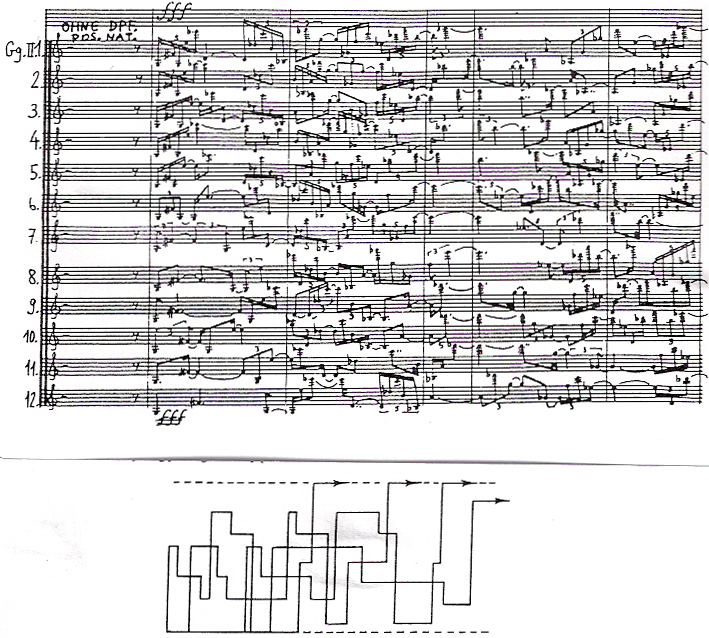 fff
OHNE DPF.
POS. NAT.
Gg. II 1
2.
3.
4.
5.
6.
7.
8.
9.
10.
11.
12.
fff